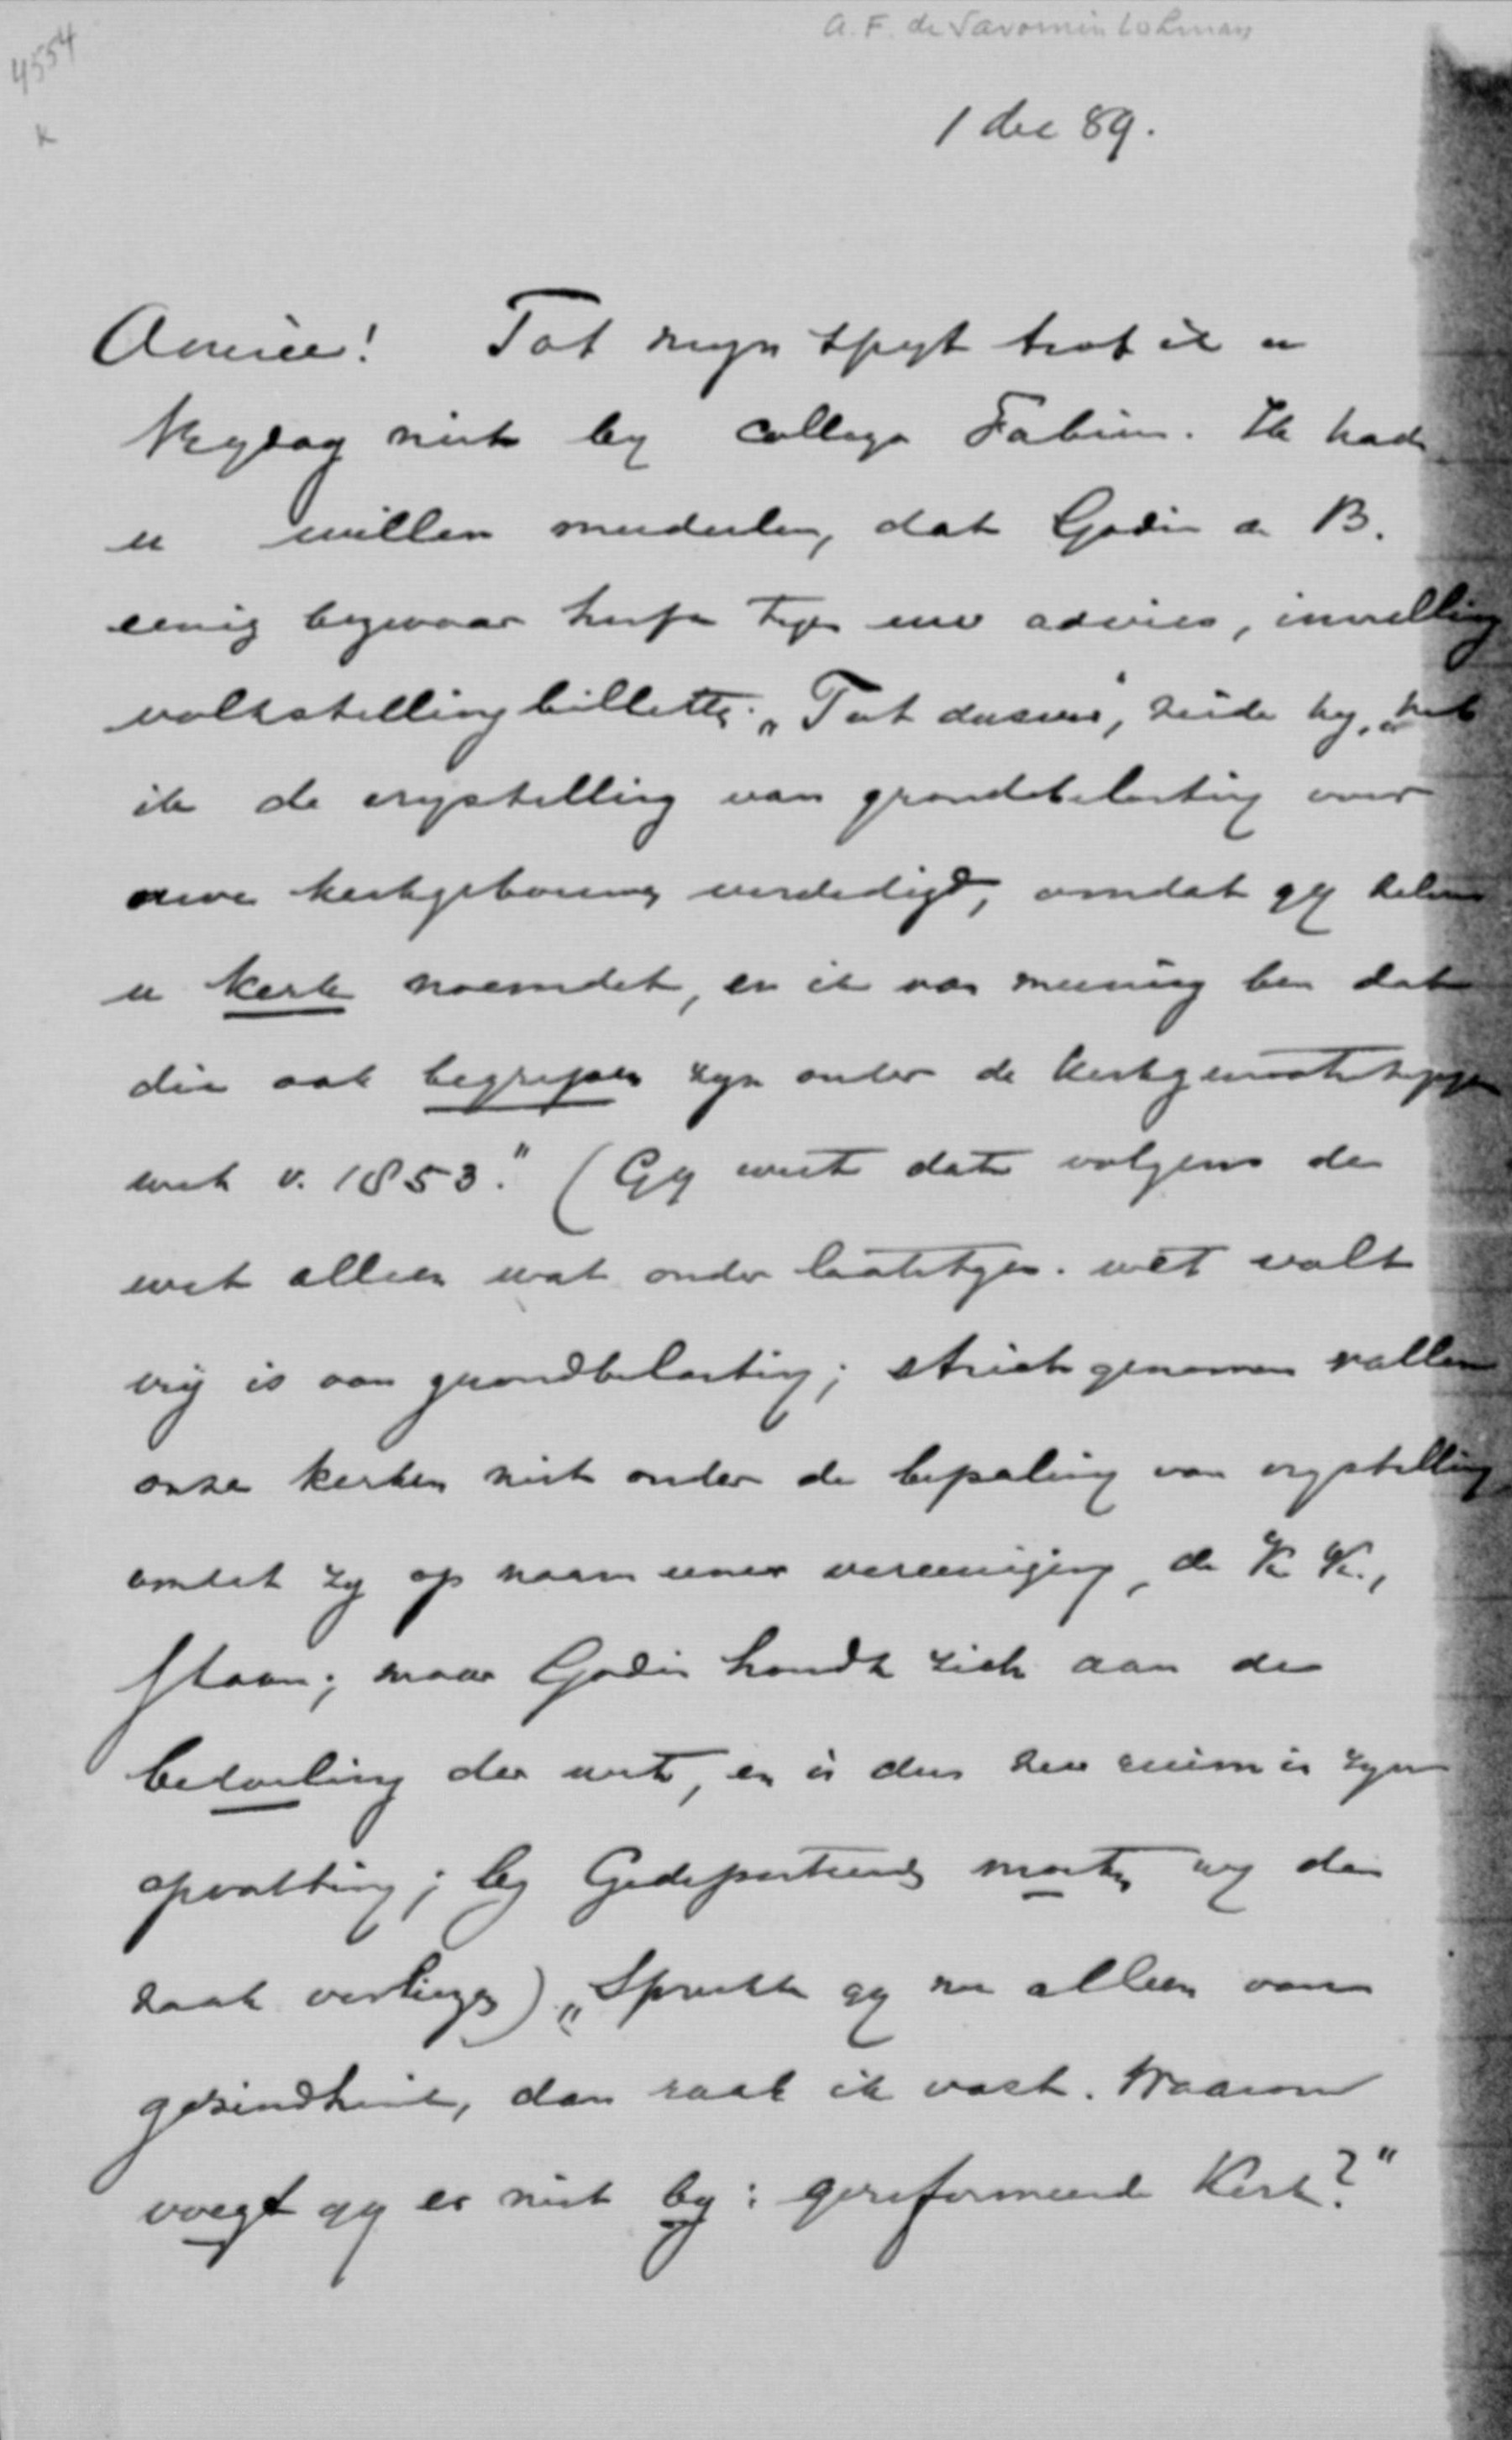 A. F. de Savornin Lohman
4554
K
1 dec 89.
Amice! Tot mijn spijt trof ik u
Vrydag niet by collega Fabius. Ik had
u willen mededeelen, dat Godin de B.
eenig bezwaar heeft tegen uw advies, invulling
volkstellingbilletten. „Tot dusver", zeide hy, „heb
ik de vrystelling van grondbelasting voor
uwe kerkgebouwen verdedigd, omdat gy zelven
u Kerk noemdet, en ik van meening ben dat
die ook begrepen zyn onder de Kerkgenootschappen
wet v. 1853." (Gy weet dat volgens de
wet alleen wat onder laatstgen. wet valt
vrij is van grondbelasting; strict genomen vallen
onze kerken niet onder de bepaling van vrystelling
omdat zy op naam eener vereeniging, de K. K.,
staan; maar Godin houdt zich aan de
bedoeling der wet, en is dus zeer ruim in zyn
opvatting; by Gedeputeerden moeten wy die
zaak verliezen) „Spreekt gy nu alleen van
gezindheid, dan raak ik vast. Waarom
voegt gy er niet by: gereformeerde Kerk?"